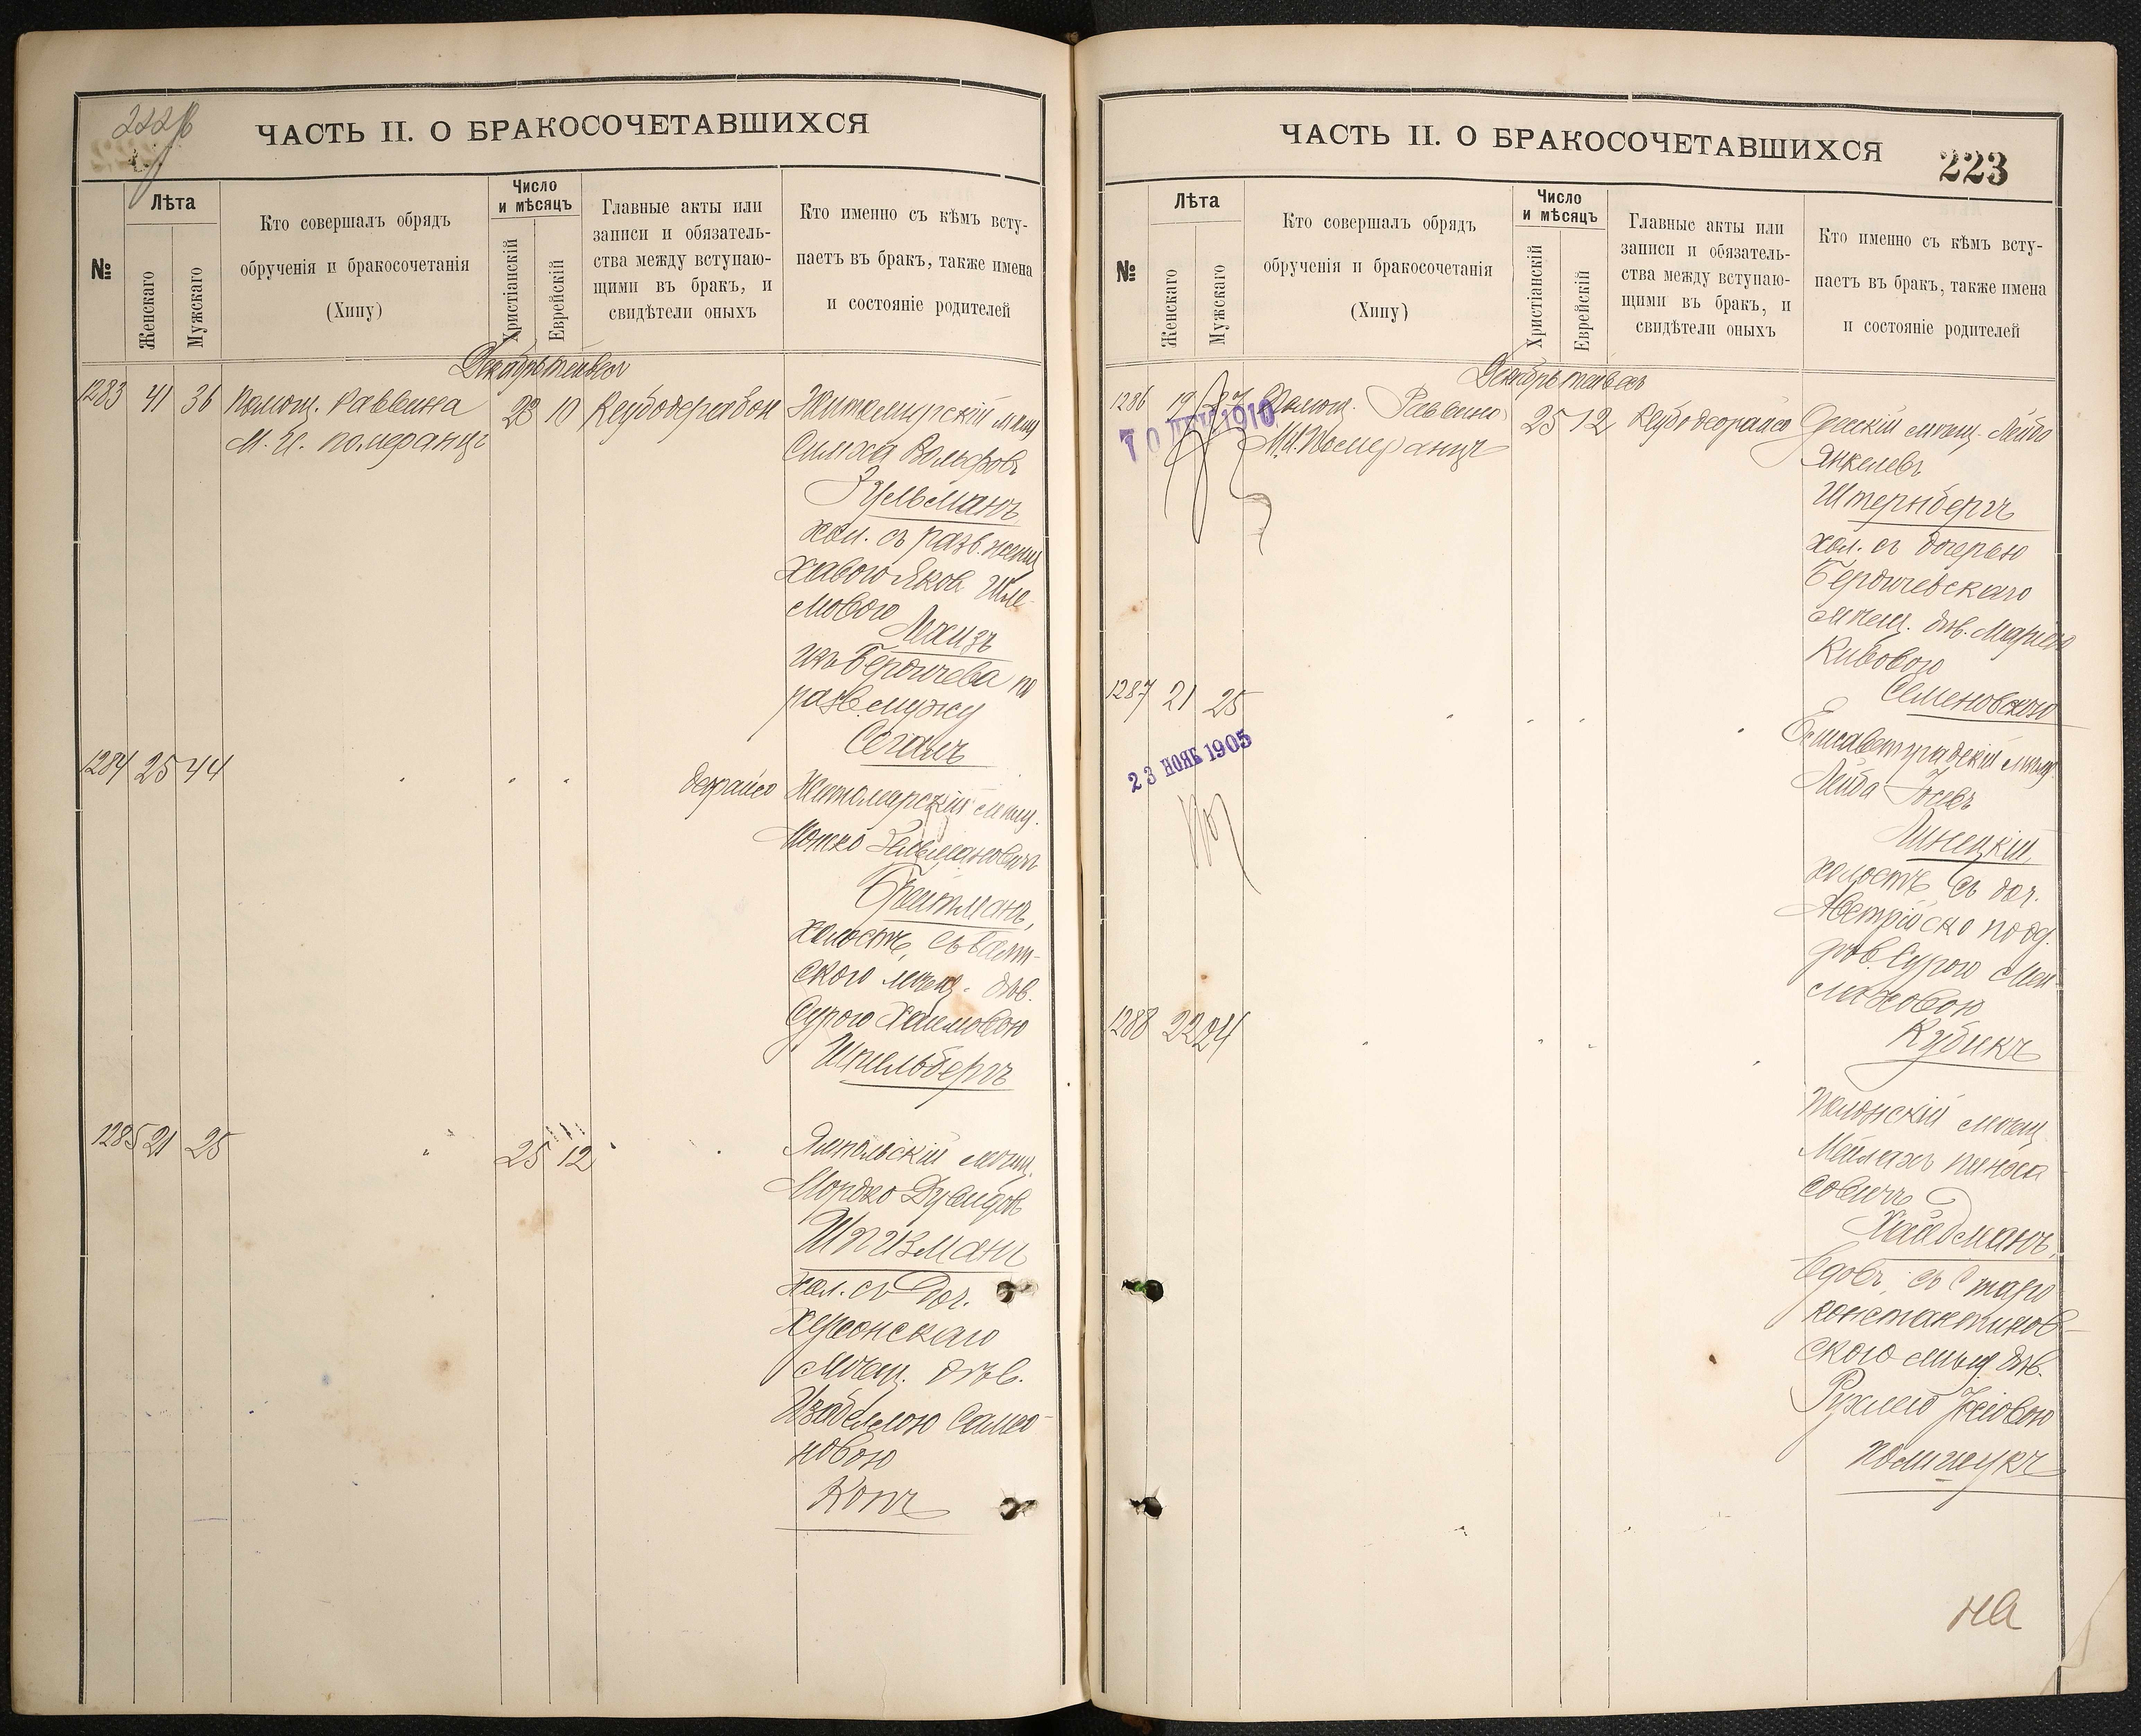 222
ЧАСТЬ II. О БРАКОСОЧЕТАВШИХСЯ
№
Лѣта
Женскаго
Мужскаго
Кто совершалъ обрядъ
обрученія и бракосочетанія
(Хипу)
Число
и мѣсяцъ
Христіанскій
Еврейскій
Главные акты или
записи и обязатель-
ства между вступаю-
щими въ бракъ, и
свидѣтели оныхъ
Кто именно съ кѣмъ всту-
паетъ въ бракъ, также имена
и состояніе родителей
Декабрь тейвесъ
1283 41 36 Помощ. Раввина
М. И. Померанцъ
23 10
Житомирскій мѣщ
Симха Вольфовъ
Зульманъ
хол. съ разв. женщ
Хавою Шле-
мовою
изъ Бердичева по
разв. мужу
Сегалъ
1284 25 44
деорайсо
Житомирскій мѣщ.
Мошко
холостъ, съ Балт-
скаго мѣщ. дѣв.
Сурою Хаимовою
Шпильбергъ
1285 21 25
25 12
Ямпольскій мѣщ.
Мордко Дувидовъ
Шпизманъ
хол. съ доч.
Херсонскаго
мѣщ. дѣв.
Изабеллою Самсо-
новою
Копъ
ЧАСТЬ II. О БРАКОСОЧЕТАВШИХСЯ
223
№
Лѣта
Женскаго
Мужскаго
Кто совершалъ обрядъ
обрученія и бракосочетанія
(Хипу)
Число
и мѣсяцъ
Христіанскій
Еврейскій
Главные акты или
записи и обязатель-
ства между вступаю-
щими въ бракъ, и
свидѣтели оныхъ
Кто именно съ кѣмъ всту-
паетъ въ бракъ, также имена
и состояніе родителей
Декабрь тейвесъ
1286 19 Помощ. Раввина
М. И. Померанцъ
1910
25 12
Ксубо деорайсо
Одесскій мѣщ. Лейба
Янкелевъ
Штернбергъ
хол. съ дочерью
Бердичевскаго
мѣщ. дѣв. Маріею
Кивовою
Семеновскою
1287 21 25
23 НОЯБ 1905
Елисаветградскій мѣщ
Лейба Іосевъ
Линецкій
холостъ, съ доч.
Австрійско подд.
дѣв. Сурою Мен-
Кубикъ
1288 22 24
Полонскій мѣщ
Мейлахъ Пинха
совичъ
Хайдманъ,
вдовъ, съ Старо
константинов-
скаго мѣщ. дѣв.
Рухлею
Полищукъ
на